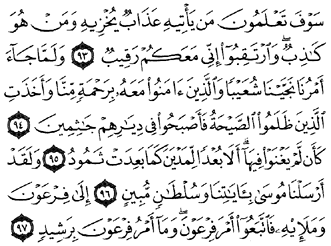 سَوْفَ تَعْلَمُونَ مَن يَأْتِيهِ عَذَابٌ يُخْزِيهِ وَمَنْ هُوَ
كَٰذِبٌ ۖ وَٱرْتَقِبُوٓا۟ إِنِّى مَعَكُمْ رَقِيبٌ ٩٣ وَلَمَّا جَآءَ
أَمْرُنَا نَجَّيْنَا شُعَيْبًا وَٱلَّذِينَ ءَامَنُوا۟ مَعَهُۥ بِرَحْمَةٍ مِّنَّا وَأَخَذَتِ
ٱلَّذِينَ ظَلَمُوا۟ ٱلصَّيْحَةُ فَأَصْبَحُوا۟ فِى دِيَٰرِهِمْ جَٰثِمِينَ ٩٤
كَأَن لَّمْ يَغْنَوْا۟ فِيهَآ ۗ أَلَا بُعْدًا لِّمَدْيَنَ كَمَا بَعِدَتْ ثَمُودُ ٩٥ وَلَقَدْ
أَرْسَلْنَا مُوسَىٰ بِـَٔايَٰتِنَا وَسُلْطَٰنٍ مُّبِينٍ ٩٦ إِلَىٰ فِرْعَوْنَ
وَمَلَإِي۟هِۦ فَٱتَّبَعُوٓا۟ أَمْرَ فِرْعَوْنَ ۖ وَمَآ أَمْرُ فِرْعَوْنَ بِرَشِيدٍ ٩٧